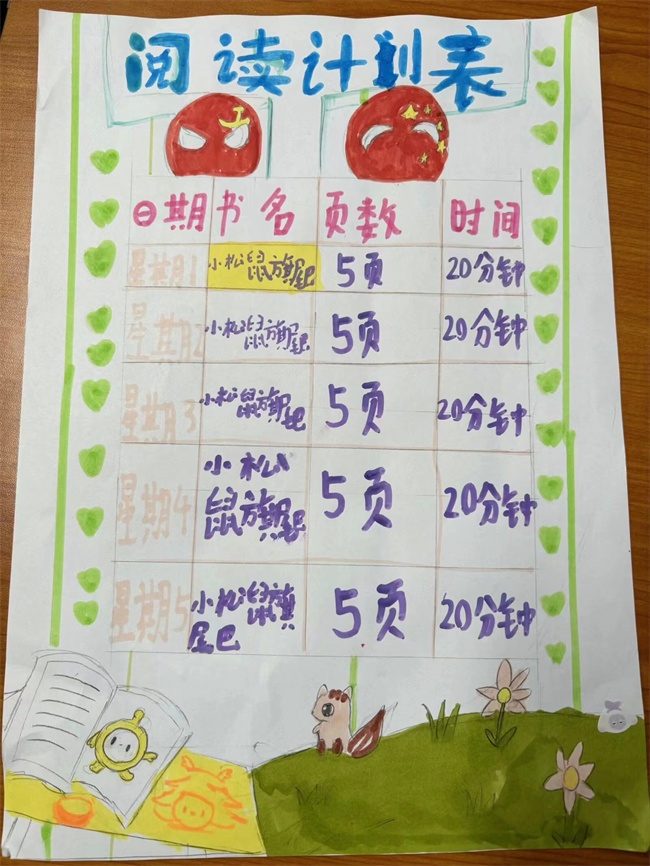 阅读计划表
日期 书名 页数 时间
星期1 小松鼠旗尾巴 5页 20分钟
星期2 小松鼠旗尾巴 5页 20分钟
星期3 小松鼠旗尾巴 5页 20分钟
星期4 小松鼠旗尾巴 5页 20分钟
星期5 小松鼠旗尾巴 5页 20分钟